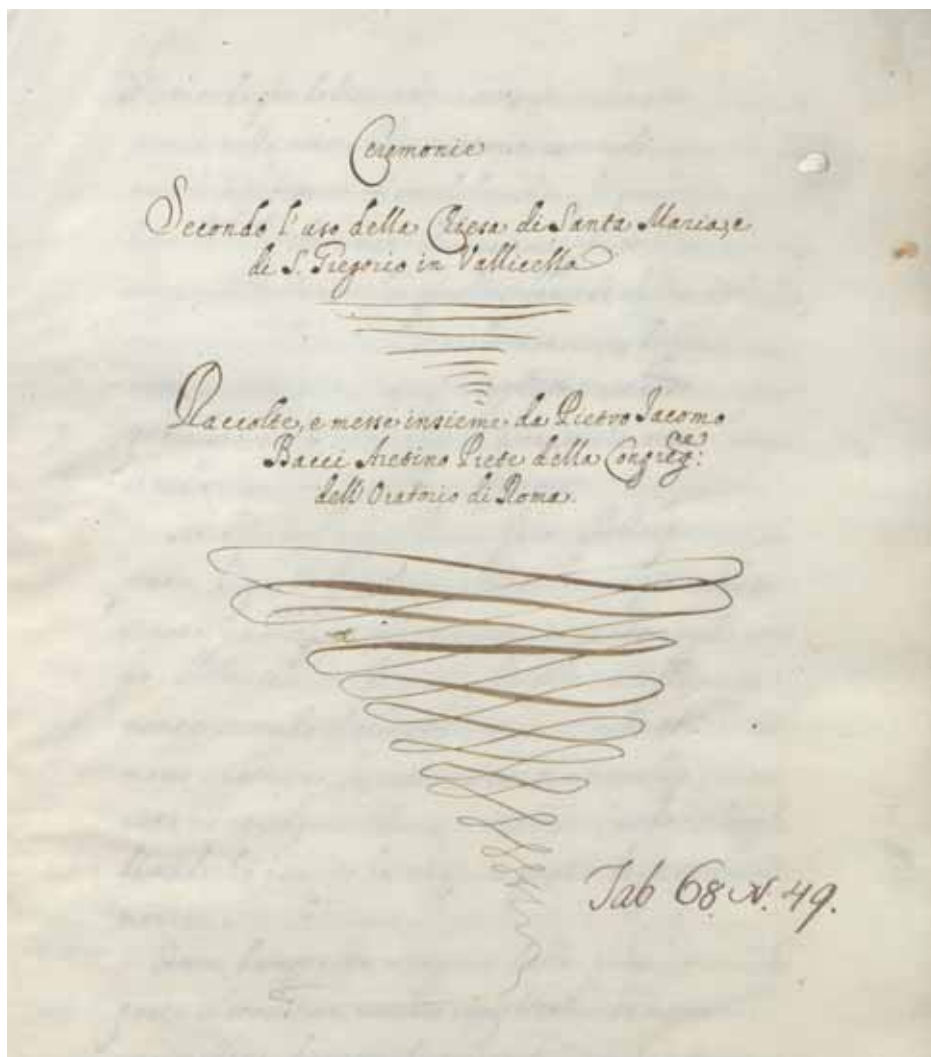 Ceremonie
Secondo l'uso della Chiesa di Santa Maria, e
di S. Gregorio in Vallicella
Raccolte, e messe insieme da Pietro Jacomo
Bacci Aretino Prete della Congreg.ne:
dell'Oratorio di Roma.
Tab 68. N. 49.